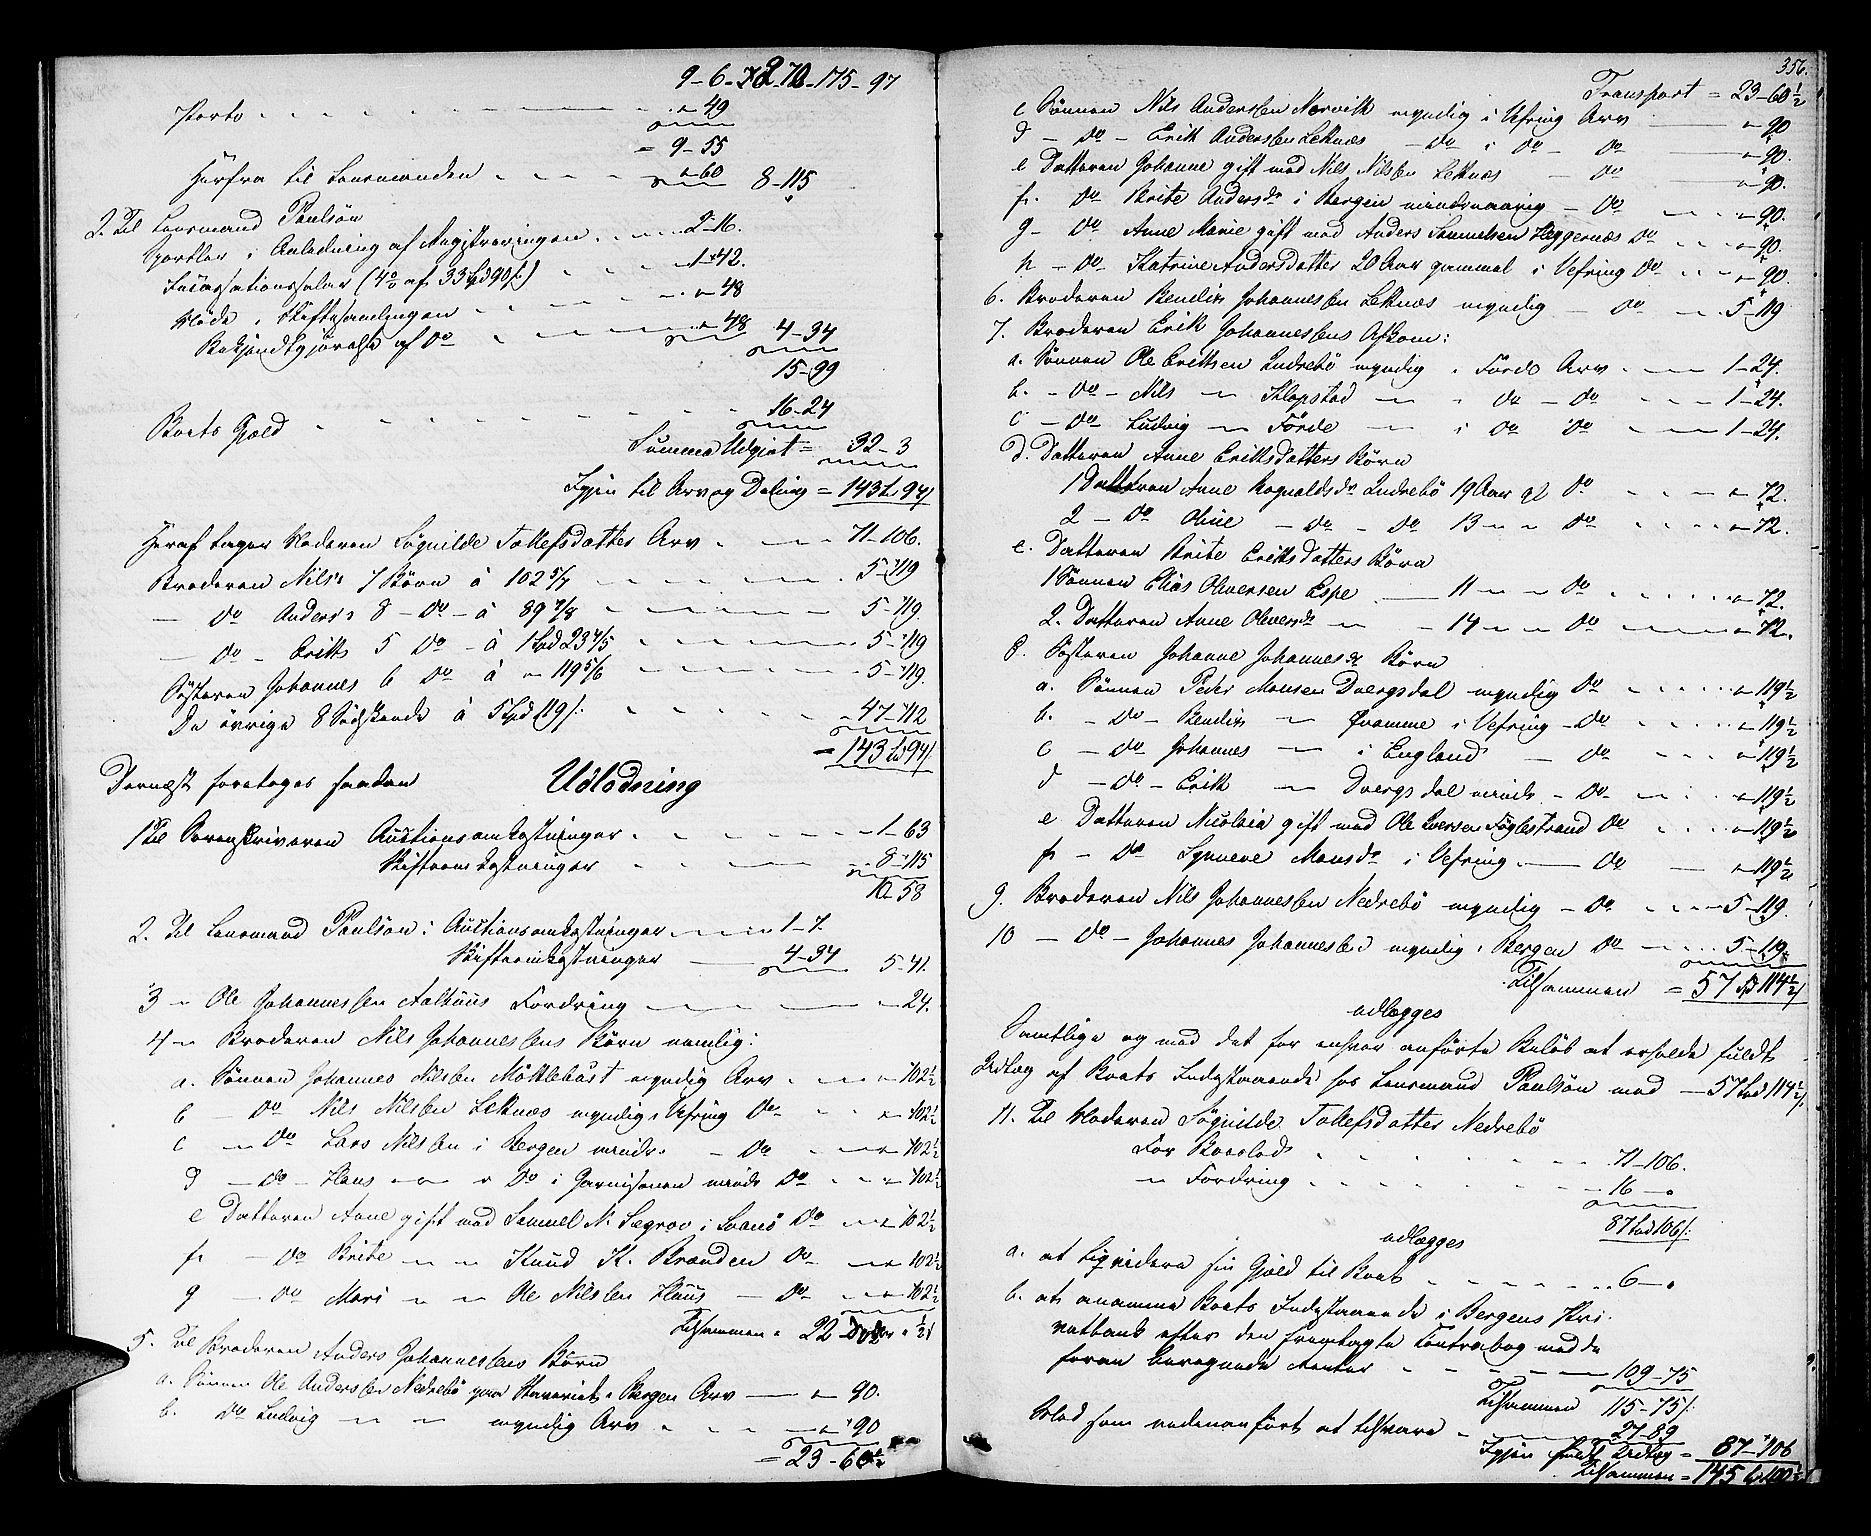 9-6- 175-97
Porto - 49
= 9-55
Herfra til Lensmanden - 60 8-115
2. Til Lensmand Paulsön
Sportler i Anledning af Registreringen 2-16.
Incassationssalær (4% af 33 Spd 90 s.) 1-42.
Møde i Skiftesamlingen - 48
Bekjendtgjørelse af Do - 48 4-34
15-99
Boets Gjæld 16-24
Summa Udgivt = 32-3
Igjen til Arv og Deling = 143 - 94
Heraf tager Moderen Sögnilde Tollefsdatter Arv 71-106.
Broderen Nils's 7 Børn á 102 5/7 5-119
- Do Anders's 8 - Do - á 89 7/8 5-119.
- Do - Eriks 5 Do - á 1 Spd 23 4/5 5-119
Søsteren Johannes 6 Do á - 119 5/6 5-119.
De övrige 8 Södskende á 5 Spd 119 s: 47-112
= 143 - 94
Dernæst foretoges saadan Udlodning
1 Til Sorenskriveren Auctionsomkostninger 1-63
Skifteomkostninger 8-115
10-58
2. Til Lensmand Paulsön i Auctionsomkostninger 1-7.
Skifteomkostninger 4-34 5-41.
3 - Ole Johannessen Aalhuus Fordring - 24.
4 - Broderen Nils Johannessens Børn nemlig:
a. Sønnen Johannes Nilsen Möklebust myndig Arv - 102½
b - Do Nils Nilsen Leknæs myndig i Vefring Do - 102½
c - Do Lars Nilsen i Bergen mindr. - Do - 102½
d - Do - Hans - - Do i Garnisonen mindr Do - 102½
e Datteren Anne gift med Samuel N. Sægrov i Svanö Do - 102½
f - Do Brite - - Knud K. Branden Do - 102½
g - Do Mari - - Ole Nilsen Haus - Do - 102½
Tilsammen
5. Til Broderen Anders Johannessens Børn
a. Sønnen Ole Andersen Nedrebö i Bergen Arv - 90.
b. Do Ludvig - - myndig Arv - 90
= 23-60½
356.
Transport = 23-60½
c Sønnen Nils Andersen Norvik myndig i Vefring Arv - 90
d - Do - Erik Andersen Leknæs - Do i Do - Do - 90.
e Datteren Johanne gift med Nils Nilsen Leknæs - Do - 90.
f. Do Brite Andersdr i Bergen mindreaarig - Do - 90.
g - Do Anne Marie gift med Anders Samuelsen Hæggernæs Do - 90.
h - Do Katrine Andersdatter 20 Aar gammel i Vefring Do - 90
6. Broderen Bendix Johannessen Leknæs myndig - Do 5-119
7. Broderen Erik Johannessens Afkom:
a. Sønnen Ole Eriksen Indrebö myndig i Förde Arv 1-24.
b. - Do - Nils - Klopstad - i Do - Do 1-24.
c - Do Ludvig - Förde - i Do Do 1-24.
d. Datteren Anne Eriksdatters Børn
1 Datteren Anne Ragnaldsdr Indrebö 19 Aar gl Do - 72.
2 - Do Oline - Do - Do 13 - - Do - 72.
e. Datteren Brite Eriksdatters Børn
1 Sønnen Elias Oliversen Espe - 11 - - Do - 72.
2. Datteren Anne Oliversdr - - 14 - - Do - 72.
8. Søsteren Johanne Johannesdr Børn
a. Sønnen Peder Monsen Dvergsdal myndig Do - 119½
b. - Do - Bendix - Hramme i Vefring - Do - 119½
c - Do Johannes - i England - Do - 119½
d - Do - Erik - Dvergsdal mindr. - Do - 119½
e Datteren Nicolvia gift med Ole Iversen Fuglestrand Do - 119½
f - Do Synneve Monsdr i Vefring - Do - 119½
9. Broderen Nils Johannessen Nedrebö myndig - Do 5-119.
10 - Do - Johannes Johannessen myndig i Bergen Do 5-119.
Tilsammen = 57 Sp 114½
udlægges
Samtlige og med det for enhver anførte Beløb at erholde fuldt
Udlæg af Boets Indestaaende hos Lensmand Paulsön med - 57 Spd 114½
11. Til Moderen Sögnilde Tollefsdatter Nedrebö
For Boeslod 71-106.
- Fordring 16-0
87 Spd 106 s:
udlægges
a. at liqvidere sin Gjæld til Boet 6-0
b. at annamme Boets Indestaaende i Bergens Pri-
vatbank efter den fremlagte Contrabog med de
foran beregnede Renter 109-75
Tilsammen 115-75 s.
Mod som nedenanført at tilsvare 27-89
Igjen fuldt Udlæg = 87-106
Tilsammen = 145 - 100½